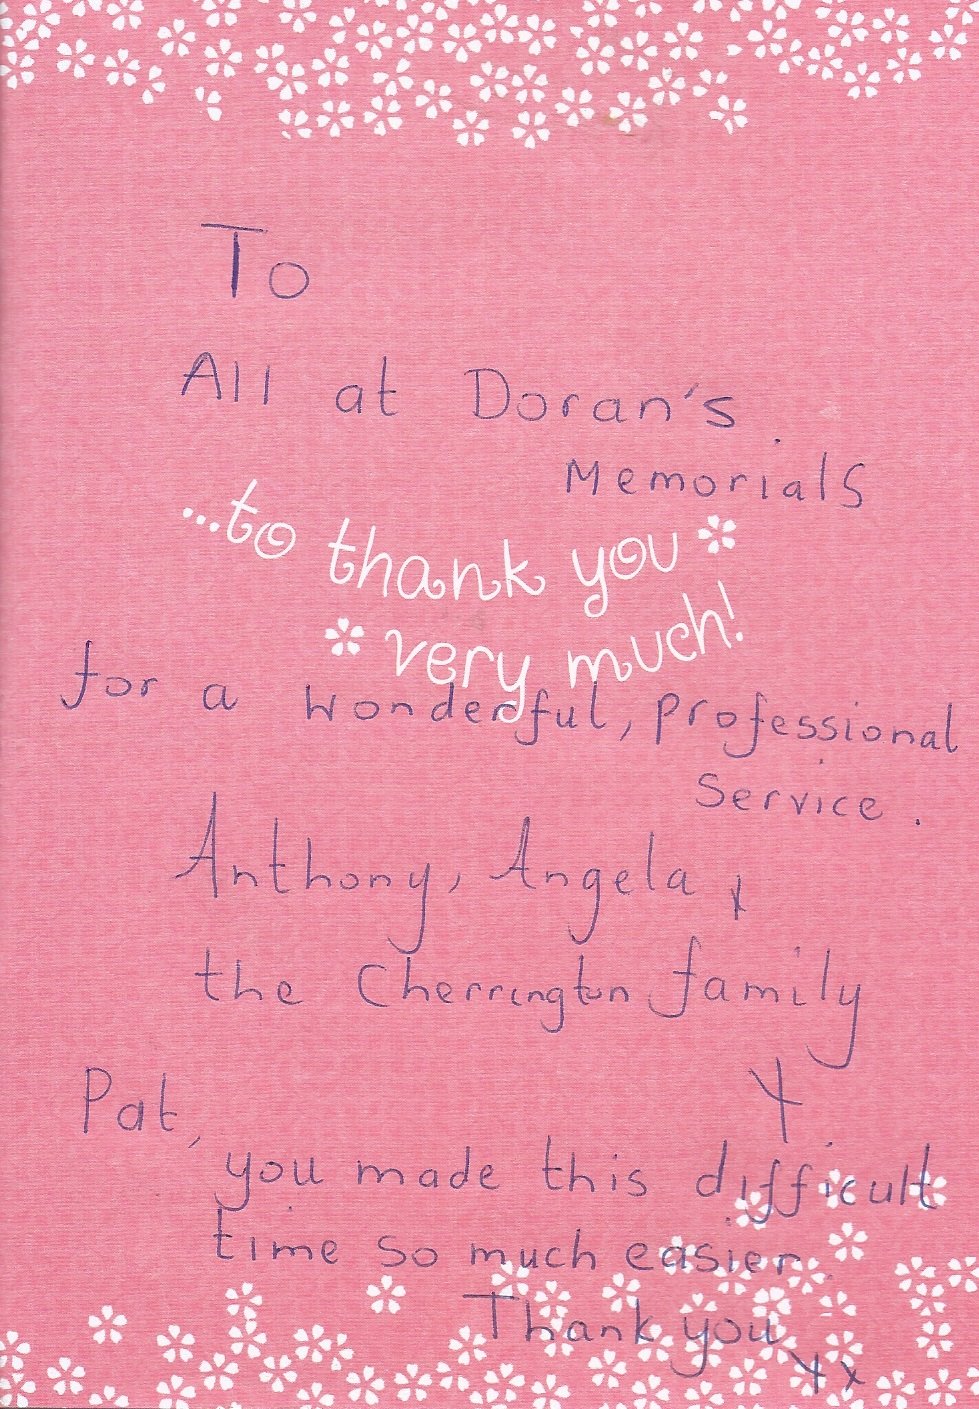 To
All at Doran's
Memorials
...to thank you
very much!
for a wonderful, professional
service.
Anthony, Angela x
the Cherrington family
x
Pat,
you made this difficult
time so much easier.
Thank you
xx